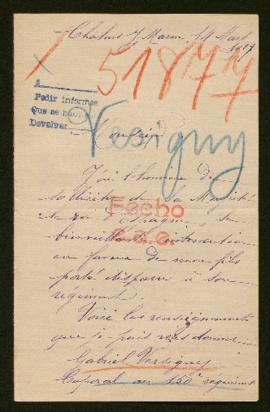 Chalons s/ Marne 14 Mars
1917
51877
A
Pedir informes
Que se
Devolver
Vesigny
J'ai l'honneur de
solliciter de Sa Majesté
le roi d'Espagne, sa
bienveillante intervention
en faveur de mon fils
porté disparu à son
régiment.
Fecho
Voici les renseignements
que je puis vous donner
Gabriel
Caporal au régiment